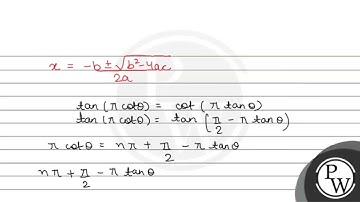 x = -b ± √b²-4ac / 2a
tan (π cotθ) = cot (π tanθ)
tan (π cotθ) = tan (π/2 - π tanθ)
π cotθ = nπ + π/2 - π tanθ
nπ + π/2 - π tanθ
P
W